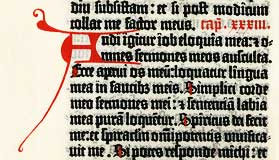 diu subsistam: et si post modicum
tollat me factor meus. ca. XXXIII.
Audi igitur iob eloquia mea: et o-
mnes sermones meos ausculta.
Ecce aperui os meū: loquatur lingua
mea in faucibus meis. Simplici corde
meo sermones mei: et sententiā labia
mea purā loquent. Spiritus dei fecit
me: et spiraculū omnipotentis vivifica-
vit me. Si potes responde michi: et